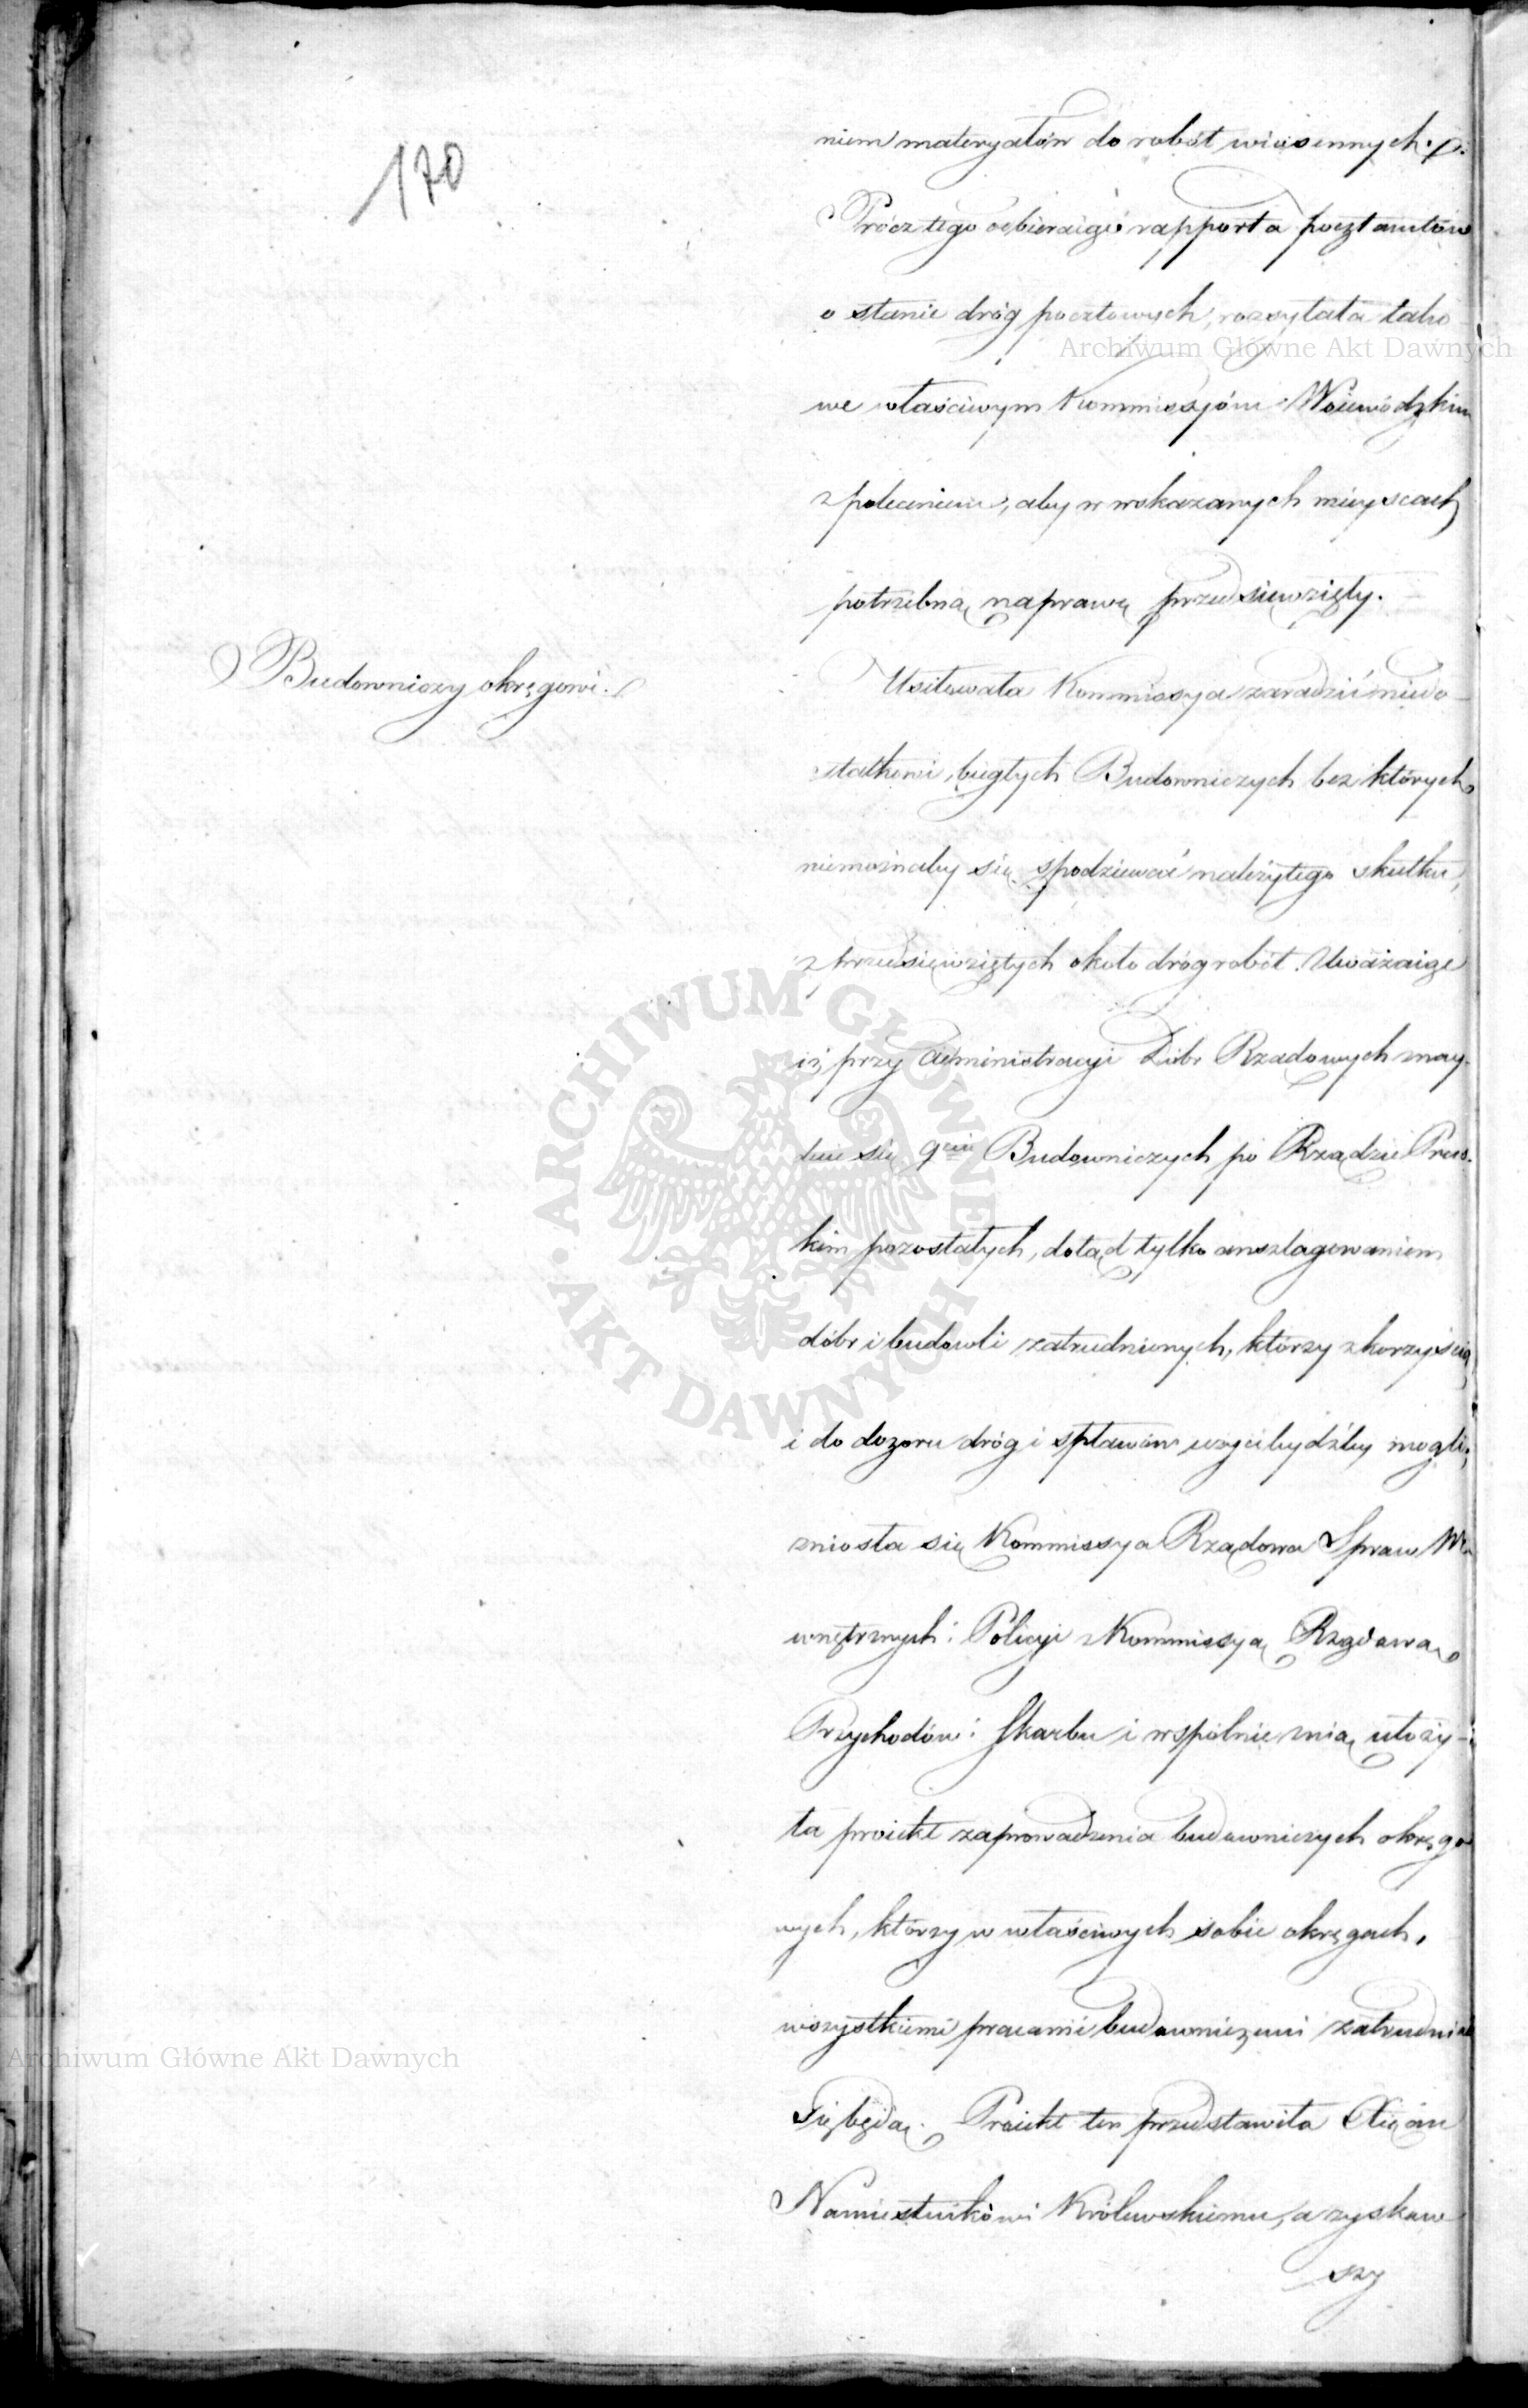 170
niem materyałów do robót wiosennych.
Prócz tego odbieraiąc rapporta pocztamtów
o stanie dróg pocztowych, rozsyłała tako
we właściwym Kommissyóm Woiewódzkim
z poleceniem, aby w wskazanych mieyscach
potrzebną naprawę przedsięwzięły.
Budowniczy okręgowi.
Usiłowała Kommissya zaradzić niedo-
statkowi biegłych Budowniczych bez których
niemożnaby się spodziewać należytego skutku,
z przedsięwziętych około dróg robót. Uważaiąc
iż przy Administracyi Dóbr Rządowych znay-
duie się 9ciu Budowniczych po Rządzie Prus-
kim pozostałych, dotąd tylko anszlagowaniem
dóbr i budowli zatrudnionych, którzy z korzyścią
i do dozoru dróg i spławów użyci bydźby mogli,
zniosła się Kommissya Rządowa Spraw We
wnętrznych i Policyi z Kommissyą Rządową
Przychodów i Skarbu i wspólnie z nią ułoży-
ła proiekt zaprowadzenia budowniczych okręgo
wych, którzy w właściwych sobie okręgach,
wszystkiemi pracami budowniczemi zatrudniać
się będą. Proiekt ten przedstawiła Xięciu
Namiestnikowi Królewskiemu, a zyskaw
szy
Archiwum Główne Akt Dawnych
ARCHIWUM GŁÓWNE AKT DAWNYCH
Archiwum Główne Akt Dawnych